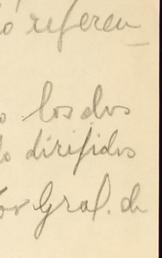 o referen
o los dos
do dirijidos
or Gral. de